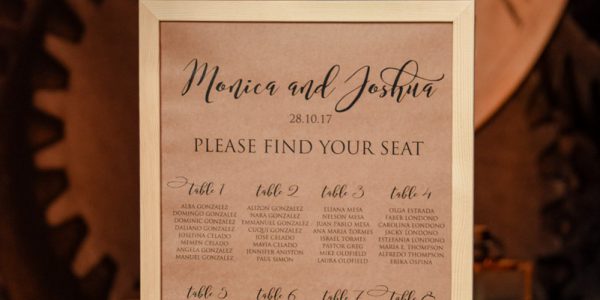 Monica and Joshua
28.10.17
PLEASE FIND YOUR SEAT
table 1
ALBA GONZALEZ
DOMINGO GONZALEZ
DOMINIC GONZALEZ
DALIANO GONZALEZ
JOSEFINA CELADO
MEMPN CELADO
ANGELA GONZALEZ
MANUEL GONZALEZ
table 2
ALIZON GONZALEZ
NARA GONZALEZ
EMMANUEL GONZALEZ
CUQUI GONZALEZ
JOSE CELADO
MAYIA CELADO
JENNIFER ANDYSTON
PAUL SIMON
table 3
ELIANA MESA
NELSON MESA
JUAN PABLO MESA
ANA MARIA TORMES
ISRAEL TORMES
PASTOR GREG
MIKE OLDFIELD
LAURA OLOFIELD
table 4
OLGA ESTRADA
FABER LONDONO
CAROLINA LONDONO
JACKY LONDONO
ESTEFANIA LONDONO
MARIA E. THOMPSON
ALFREDO THOMPSON
ERIKA OSPINA
table 5
table 6
table 7
table 8